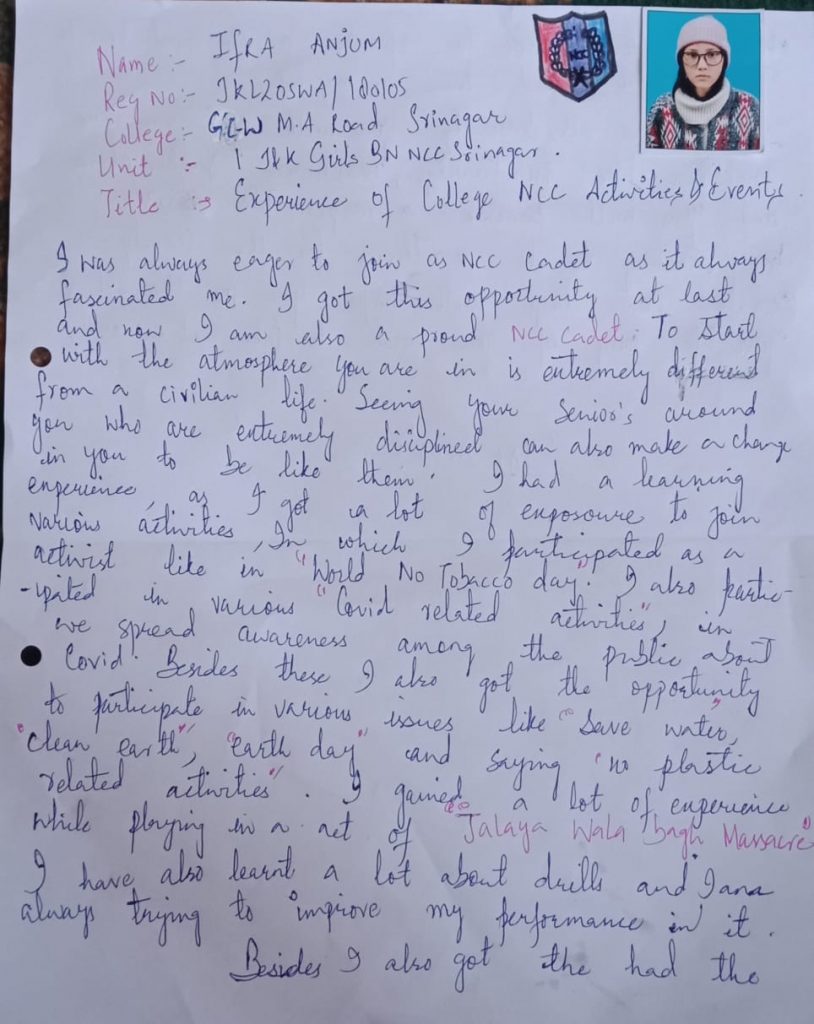 Name :- IfRA ANJUM
Reg No:- JKL20SWA/180105
College:- GCW M.A. Road Srinagar
Unit :- 1 J&K Girls BN NCC Srinagar.
Title :- Experience of College NCC Activities & Events.
NCC
I was always eager to join as NCC Cadet as it always
fascinated me. I got this opportunity at last
and now I am also a proud NCC cadet. To start
with the atmosphere you are in is extremely different
from a civilian life. Seeing your Senior's around
you who are extremely disciplined can also make a change
in you to be like them. I had a learning
experience, as I got a lot of exposoure to join
various activities, In which I participated as a
activist like in "World No Tobacco day". I also partic-
-ipated in various "Covid related activities", in
we spread awareness among the public about
Covid. Besides these I also got the opportunity
to participate in various issues like "Save water",
"Clean earth", "earth day" and saying "no plastic
related activities". I gained a lot of experience
while playing in a act of "Jalaya Wala bagh Massacre"
I have also learnt a lot about drills and I am
always trying to improve my performance in it.
Besides I also got the had the